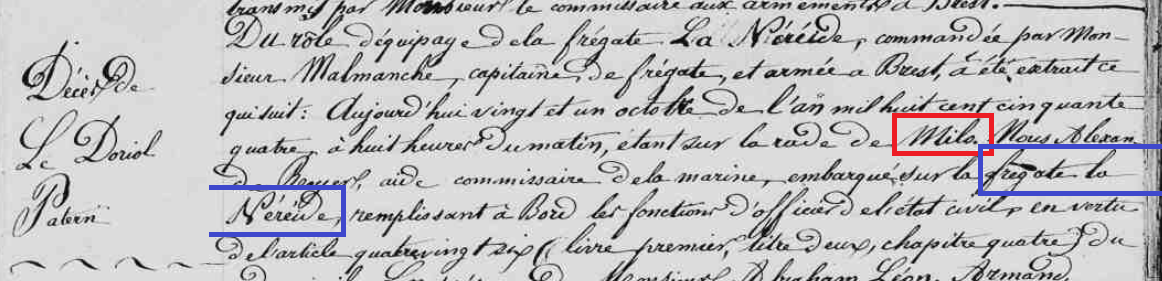 transmis par Monsieur le commissaire aux armements à Brest.
Du rôle d'équipage de la frégate La Néréide, commandée par Mon-
sieur Malmanche, capitaine de frégate, et armée a Brest, à été extrait ce
qui suit: Aujourd'hui vingt et un octobre de l'an mil huit cent cinquante
quatre, à huit heures du matin, étant sur la rade de Milo. Nous Alexan
de Royer, aide commissaire de la marine, embarqué sur la frégate la
Néréide, remplissant à Bord les fonctions d'officier de l'état civil, en vertu
de l'article quatrevingt six (livre premier, titre deux, chapitre quatre) du
Monsieur Abraham Léon Armand,
Décès de
Le Doriol
Patern